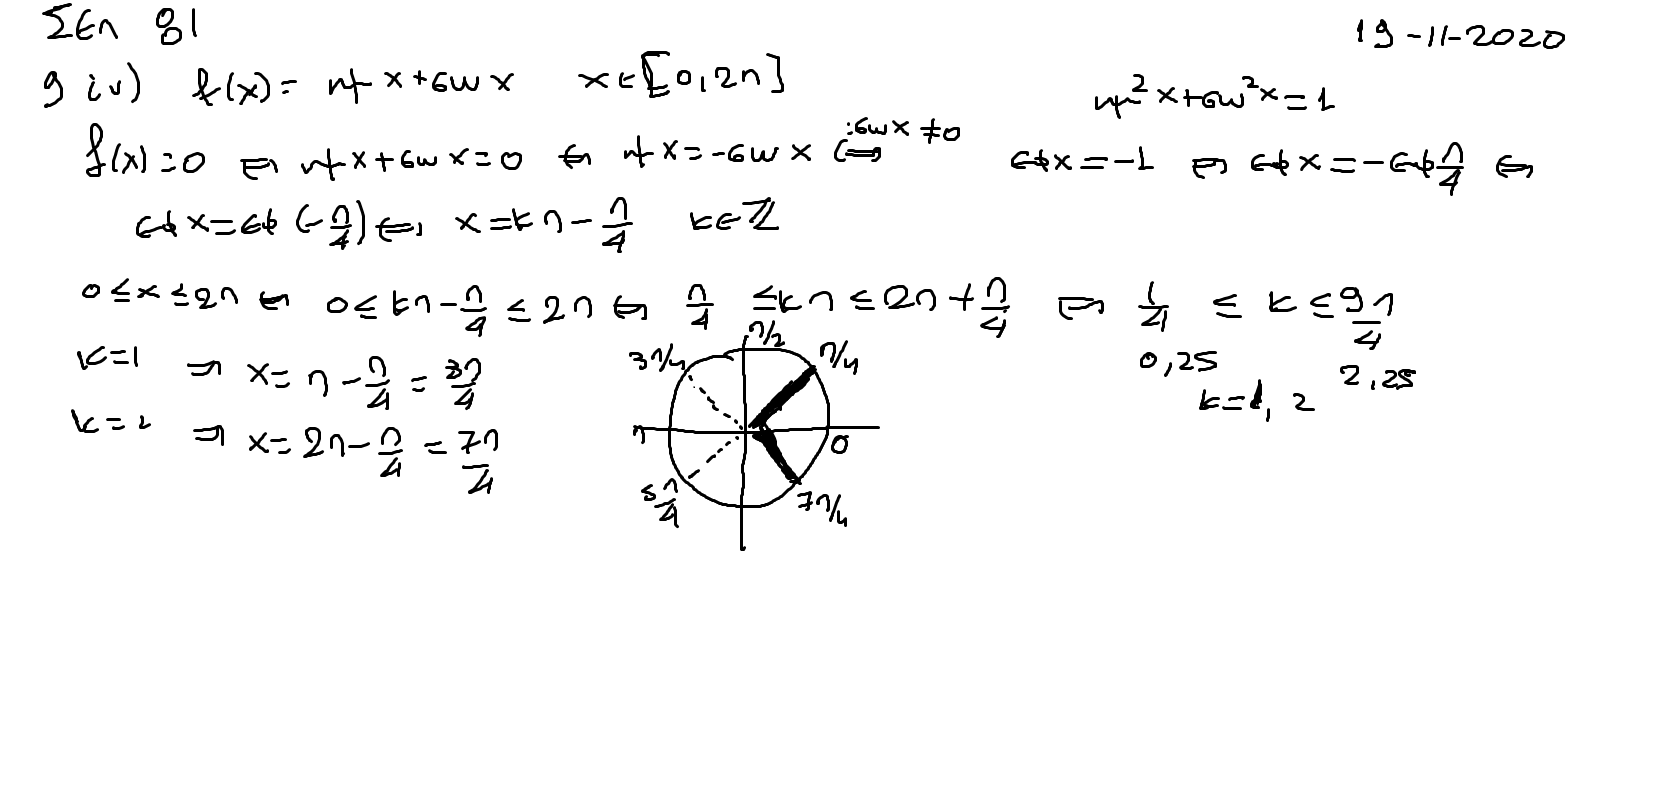 Σελ 81 19-11-2020
9 iv) f(x) = ημx+συνx x∈[0,2π] ημ²x+συν²x=1
f(x)=0 ⇔ ημx+συνx=0 ⇔ ημx=-συνx ⇔ :συνx≠0 εφx=-1 ⇔ εφx=-εφπ/4 ⇔
εφx=εφ(-π/4) ⇔ x=κπ-π/4 κ∈ℤ
0≤x≤2π ⇔ 0≤κπ-π/4≤2π ⇔ π/4≤κπ≤2π+π/4 ⇔ 1/4 ≤ κ ≤ 9π/4
0,25 2,25
κ=1, 2
κ=1 ⇒ x=π-π/4=3π/4
κ=2 ⇒ x=2π-π/4=7π/4
π/2
3π/4 π/4
π 0
5π/4 7π/4